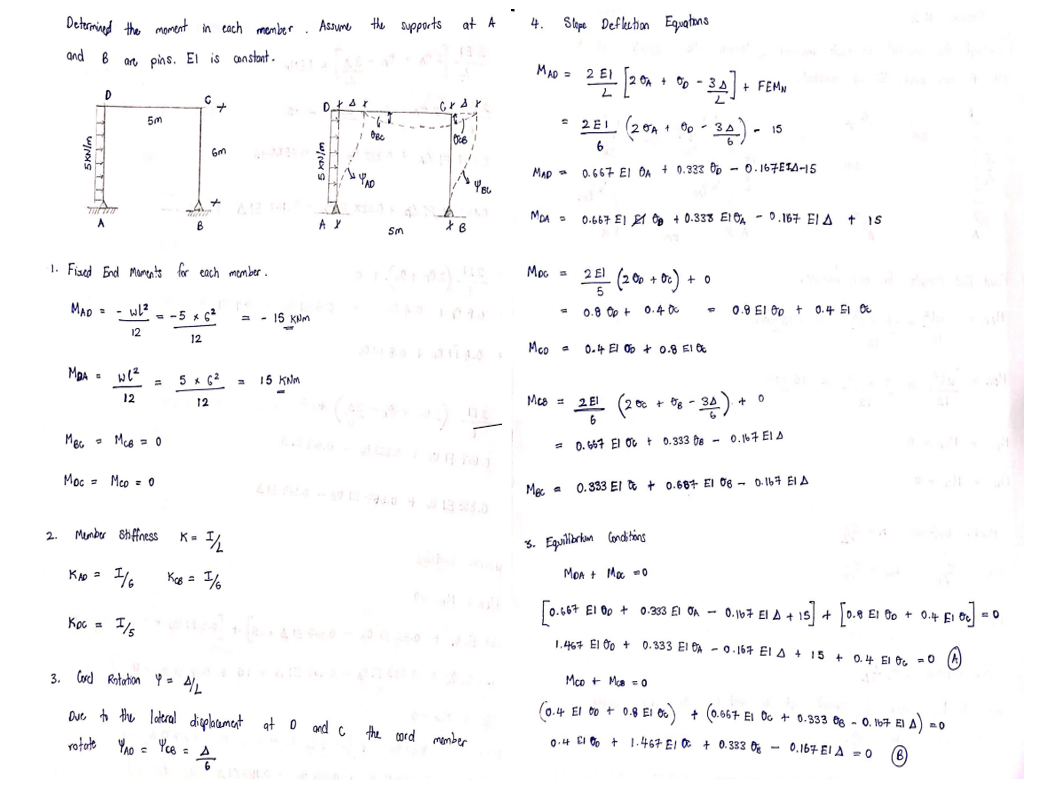 Determined the moment in each member. Assume the supports at A
and B are pins. EI is constant.
D
C
5m
6m
5 KN/m
A
B
D
Δ
C
Δ
θBC
θCB
5 KN/m
ψAD
ψBC
A
5m
B
1. Fixed End Moments for each member.
MAD = - wl² / 12 = -5 x 6² / 12 = - 15 KNm
MDA = wl² / 12 = 5 x 6² / 12 = 15 KNm
MBC = MCB = 0
MDC = MCD = 0
2. Member Stiffness K = I/L
KAD = I/6 KCB = I/6
KDC = I/5
3. Cord Rotation Ψ = Δ/L
Due to the lateral displacement at D and C the cord member
rotate ΨAD = ΨCB = Δ/6
4. Slope Deflection Equations
MAD = 2EI/L [2θA + θD - 3Δ/L] + FEMN
= 2EI/6 (2θA + θD - 3Δ/6) - 15
MAD = 0.667 EI θA + 0.333 θD - 0.167EIΔ-15
MDA = 0.667 EI EI θB + 0.333 EIθA - 0.167 EIΔ + 15
MDC = 2EI/5 (2θD + θC) + 0
= 0.8 θD + 0.4 θC = 0.8 EI θD + 0.4 EI θC
MCD = 0.4 EI θD + 0.8 EI θC
MCB = 2EI/6 (2θC + θB - 3Δ/6) + 0
= 0.667 EI θC + 0.333 θB - 0.167 EIΔ
MBC = 0.333 EI θC + 0.667 EI θB - 0.167 EIΔ
3. Equilibrium Conditions
MDA + MDC = 0
[0.667 EI θD + 0.333 EI θA - 0.167 EI Δ + 15] + [0.8 EI θD + 0.4 EI θC] = 0
1.467 EI θD + 0.333 EI θA - 0.167 EI Δ + 15 + 0.4 EI θC = 0 (A)
MCD + MCB = 0
(0.4 EI θD + 0.8 EI θC) + (0.667 EI θC + 0.333 θB - 0.167 EI Δ) = 0
0.4 EI θD + 1.467 EI θC + 0.333 θB - 0.167 EI Δ = 0 (B)